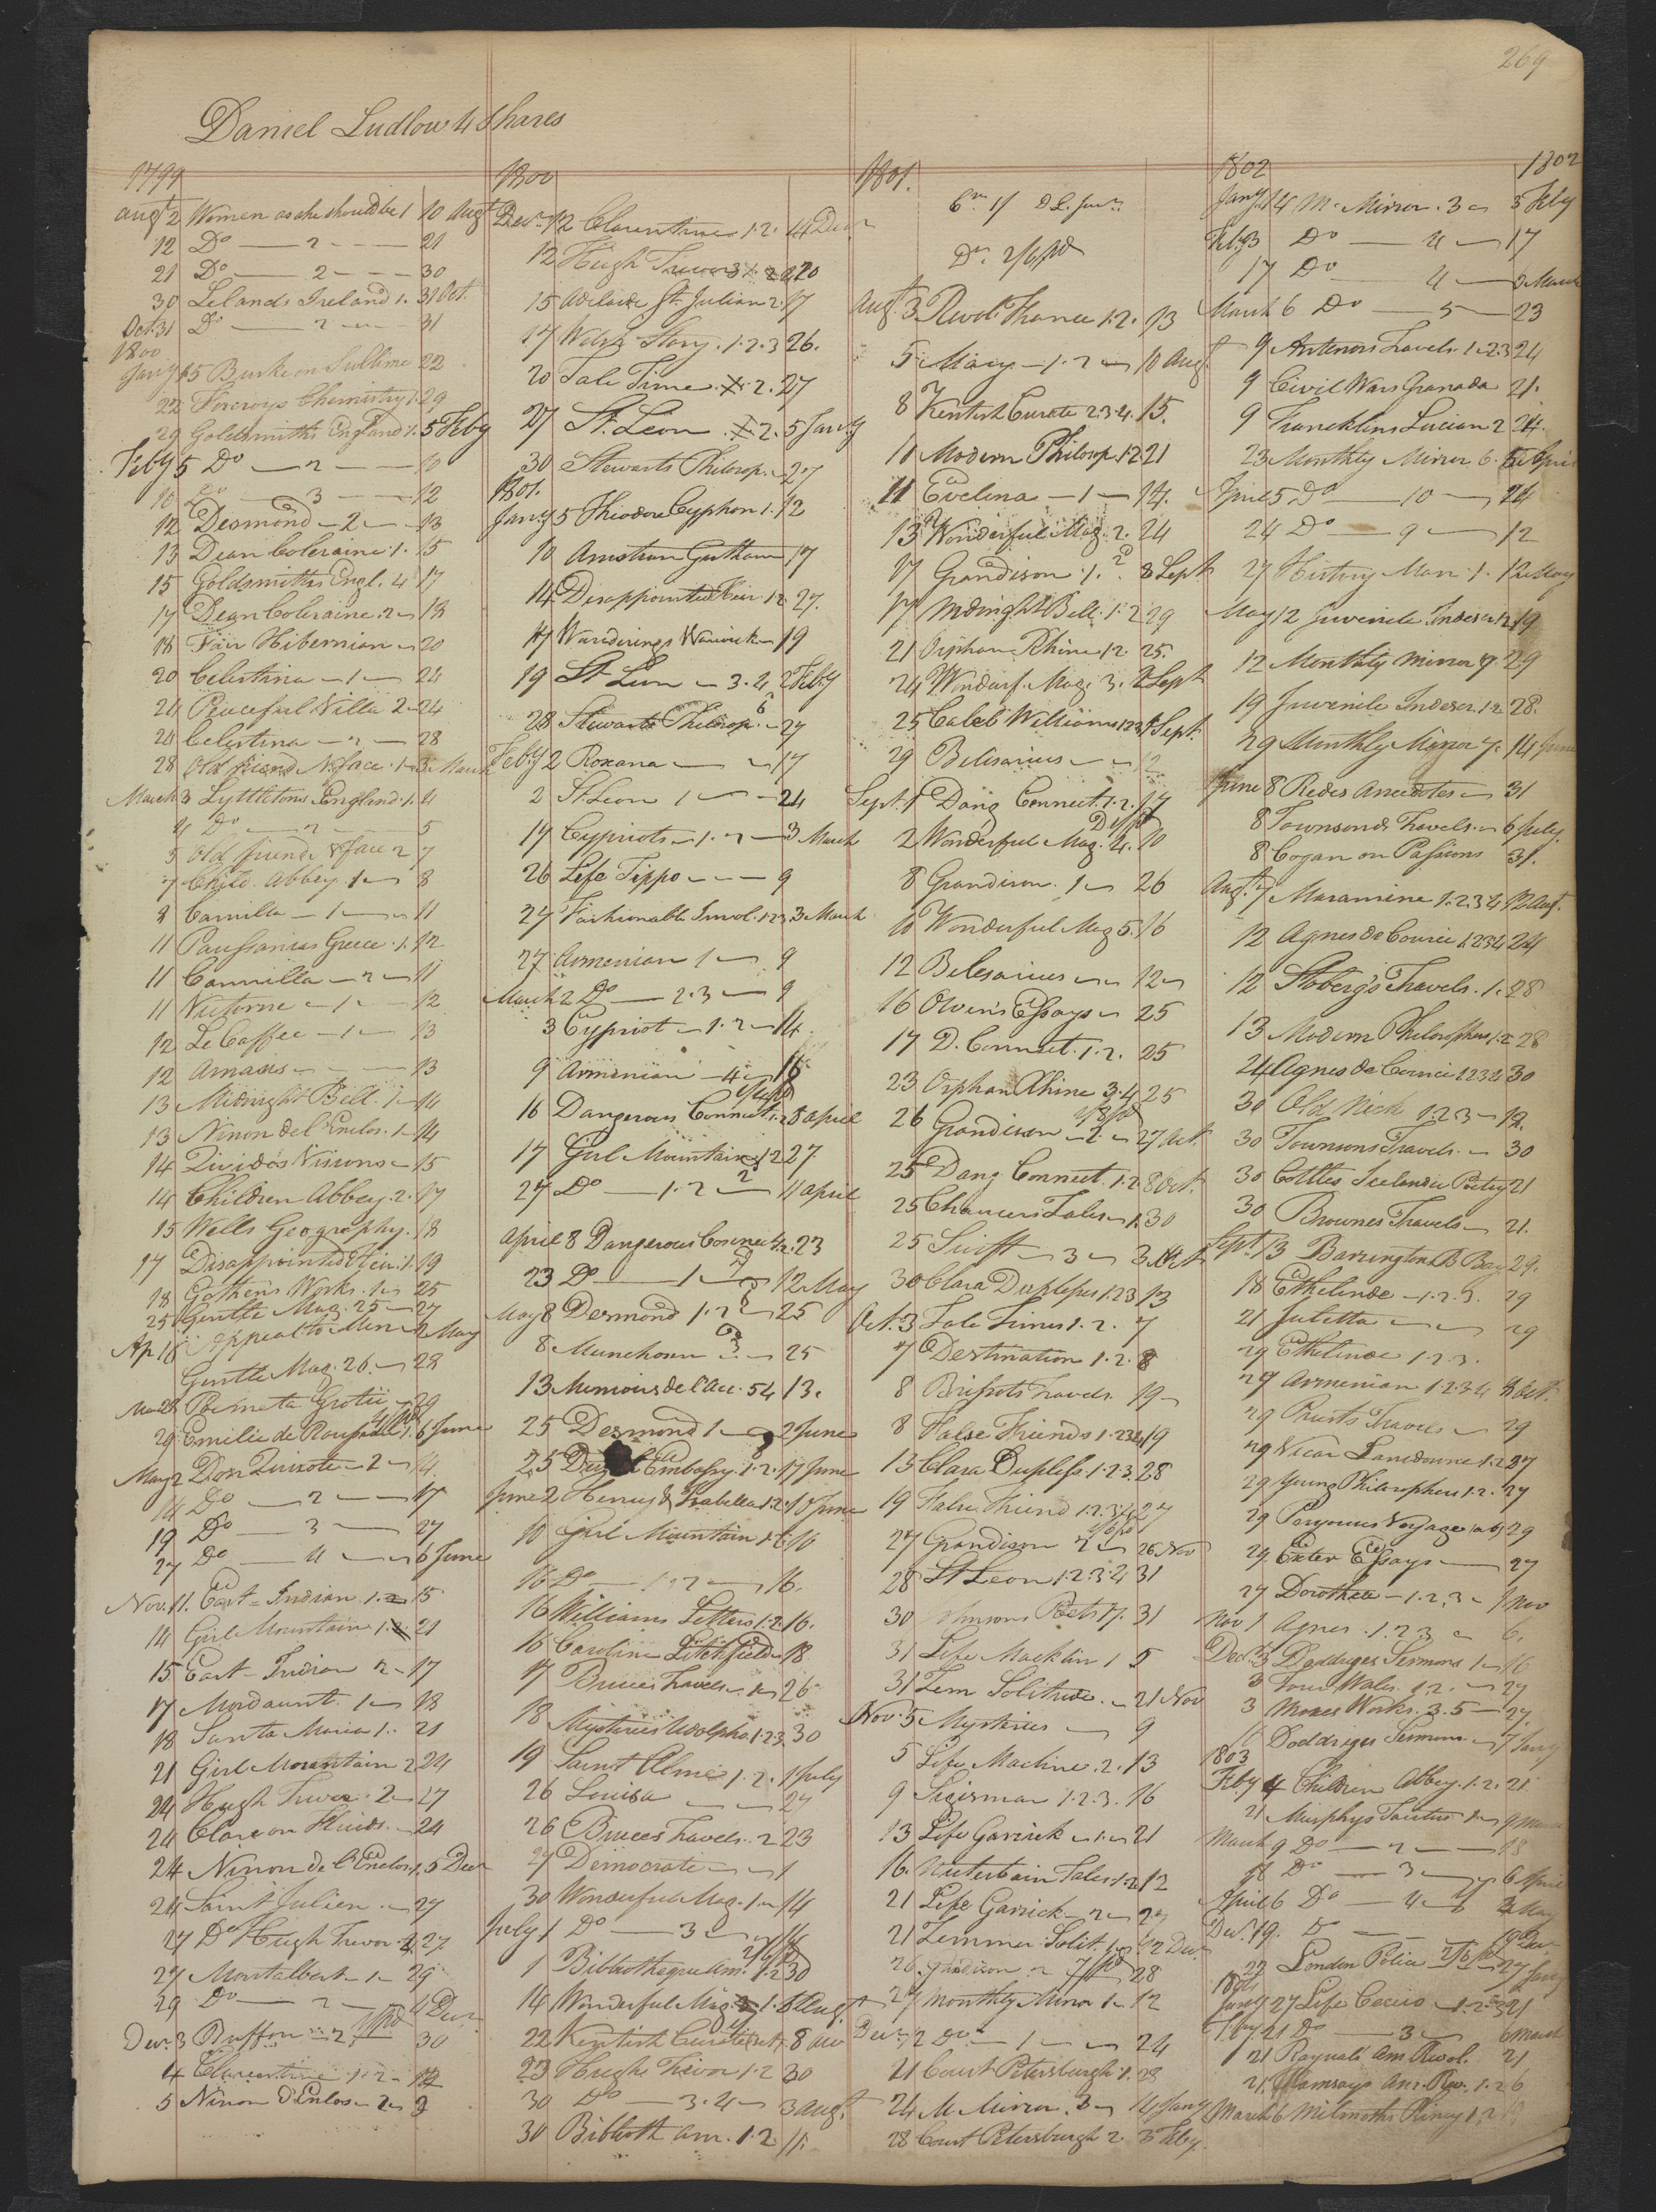 269
Daniel Ludlow 4 Shares
1799
Augt 2 Women as she should be 1 10 Augt
12 Do — 2 — 21
21 Do — 2 — 30
30 Lelands Ireland 1. 31 Oct.
Oct. 31 Do — 2 — 31
1800
Jany 15 Burke on Sublime 22
22 Forcroys Chemistry 1. 29
29 Goldsmiths England 1. 5 Feby
Feby 5 Do — 2 — 10
10 Do — 3 — 12
12 Desmond — 2 — 13
13 Dean Coleraine. 1. 15
15 Goldsmiths Engl. 4 17
17 Dean Coleraine. 2 18
18 Fair Hibernian 20
20 Celestina — 1 — 24
24 Peaceful Villa 2 — 24
24 Celestina — 2 — 28
28 Old friend N. face. 1 3 March
March 3 Lyttletons England. 1. 4
4 Do — 2 — 5
5 Old friend & face 2 7
7 Child. Abbey 1 8
8 Camilla — 1 — 11
11 Paussanias Greece. 1. 12
11 Cammilla — 2 — 11
11 Victorine — 1 — 12
12 Le Caffee — 1 — 13
12 Amasis — 13
13 Midnight Bell. 1 — 14
13 Ninon de l'Enclos. 1 — 14
14 Quividos Visions — 15
14 Children Abbey. 2. 17
15 Wells Geography. 18
17 Disappointed Heir. 1. 19
18 Gothers Works. 1 25
25 Gentle Mag. 25 — 27
Ap 16 Appeal to Men 2 May
Gentle Mag. 26. — 28
28 Poemata Grotii — 29
29 Emilie de 1. 6 June
May 2 Don Quixote — 2 — 14
14 Do — 2 — 17
19 Do — 3 — 27
27 Do — 4 — 6 June
Nov. 11. East-Indian. 1. 2 15
14 Girl Mountain 1. 21
15 East-Indian 2 — 17
17 Mordaunt. 1 — 18
18 Santa Maria 1. 21
21 Girl Mountain 2 24
24 Hugh Trevor. 2 — 27
24 Clare on Fluids. — 24
24 Ninon de l'Enclos 1. 5 Decr
24 Saint Julien. — 27
27 Do Hugh Trevor. 2. 27
27 Montalbert — 1 — 29
29 Do — 2 — 4 Decr
Decr 3 Buffon — 2 30
4 Clarentine. 1. 2 — 12
5 Ninon D'Enlos — 2 9
1800
Decr 12 Clarentine 1. 2. 14 Decr
12 Hugh Trevor 3 20
15 Adelaide St. Julian 2. 17
17 Welsh Story. 1. 2. 3 26.
20 Tale Times. 2. 27
27 St. Leon 2. 5 Jany
30 Stewarts Philosop. 27
1801.
Jany 5 Theodore Cyphon 1. 12
10 17
14 Disappointed Heir. 1. 2. 27.
17 Wanderings Warwick — 19
19 St Leon — 3. 4 2 Feby
28 Stewarts Philosop. — 27
Feby 2 Roxana — 17
2 St. Leon 1 — 24
17 Cypriots — 1. 2 — 3 March
26 Life Tippo — 9
27 Fashionable Invol. 1. 2. 3 3 March
27 Armenian 1 — 9
March 2 Do — 2. 3 — 9
3 Cypriot — 1. 2 — 14.
9 Armenian — 4 — 16
16 Dangerous Connect. 1. 2 8 April
17 Girl Mountain 1. 2 27
27 Do — 1. 2 — 11 April
April 8 Dangerous Connect 1. 2. 23
23 Do — 1 — 12 May
May 8 Desmond 1. 2 — 25
8 Munchosen — 25
13 Memoirs de l'Acc. 54 13.
25 Desmond 1 — 2 June
25 Embassy. 1. 2. 17 June
June 2 Henry & Isabella 1. 2. 10 June
10 Girl Mountain 1. 2 16
16 Do — 1. 2 — 16.
16 Williams Letters 1. 2. 16.
16 Caroline Litchfield 18
17 Bruces Travels. — 26
18 Mysteries Udolpho. 1. 2. 3. 30
19 Saint Elmes 1. 2. 1 July
26 Louisa — 27
26 Bruces Travels. 2 23
27 Democrate — 1
30 Wonderful Mag. 1 — 14
July 1 Do — 3 — 14
1 Bibliotheque Am. 1. 2 30
14 Wonderful Mag. 1. 6 Augt
22 Kentish Curate 8 do
23 Hugh Trevor 1. 2 30
30 Do — 3. 4 — 3 Augt
30 Biblioth Am. 1. 2 11.
1801.
Augt 3 Revol. France 1. 2. 13
5 Mary — 1. 2 — 10 Augt
8 Kentish Curate 2. 3. 4. 15.
10 Modern Philosop. 1. 2 21
11 Evelina — 1 — 14.
13 Wonderful Mag. 2. 24
17 Grandison. 1. 2 8 Sept
17 Midnight Bell. 1. 2 29
21 Orphan Rhine 1. 2. 25.
24 Wonderf. Mag. 3. 2 Sept
25 Caleb Williams 1. 2. 3 Sept.
29 Belisarius — 12
Sept. 1 Dang Connect. 1. 2. 17
2 Wonderful Mag. 4. 10
8 Grandison. 1 — 26
10 Wonderful Mag 5. 16
12 Belesarius — 12
16 Owen's Essays — 25
17 D. Connect. 1. 2. 25
23 Orphan Rhine 3. 4. 25
26 Grandison — 2 — 27 Oct.
25 Dang Connect. 1. 2. 8 Oct.
25 Chaucers Tales — 1. 30
25 Swift — 3 — 3. Oct
30 Clara Duplessis 1. 2. 3 13
Oct. 3 Tale Times 1. 2. 7
7 Destination 1. 2. 8
8 Brissots Travels. 19
8 False Friends 1. 2 3 4 19
13 Clara Dupless. 1. 2. 3. 28
19 False Friend 1. 2. 3. 4 27
27 Grandison 2 — 26 Nov
28 St Leon 1. 2. 3. 4 31
30 Johnsons Poets 17. 31
31 Life Macklin 1 5
31 Zem Solitude. — 21 Nov
Nov. 5 Mysteries — 9
5 Life Macline. 2. 13
9 Sigisman 1. 2. 3. 16
13 Life Garrick — 1 — 21
16. Winterbain Tales. 1. 2 12
21 Life Garrick — 2 — 27
21 Zemmer. Solit. 1. 2 Decr
26. Grandison 2 28
27 Monthly Mirror 1 — 12
Decr 12 Do — 1 — 24
21 Court Petersburgh. 1. 28
24 M Mirror. 3 — 14 Jany
28 Court Petersburgh 2 3 Feby.
1802
1802
Jany 14 M. Mirror. 3 3 Feby
Feby 3 Do — 4 — 17
17 Do — 4 — 3 March
March 6 Do — 5 — 23
9 Antenors Travels. 1. 2. 3 24
9 Civil Wars Granada 21.
9 Francklins Lucian 2 24.
23 Monthly Mirror 6. 5 April
April 5 Do — 10 — 24
24 Do — 9 — 12
27 History Man. 1. 12 May
May 12 Juvenile Indescn 1. 2. 19
12 Monthly Mirror 7. 29
19 Juvenile Indescr. 1. 2 28.
29 Monthly Mirror 7. 14 June
June 8 Redes Anecdotes — 31
8 Townsends Travels — 6 July.
8 Cogan on Passions 31.
Augt 7 Maramine 1. 2. 3 4 12 Augt.
12 Agnes de Courcie 1. 2 3 4 24
12 Stoberg's Travels. 1. 28
13 Modern Philosophers 1. 2 28
24 Agnes de Cource 1 2 3 4 30
30 Old Nick 1. 2 3 — 19.
30 Townsons Travels. — 30
30 Cottles Icelandic Poetry 21
30 Brownes Travels — 21.
Sept. 13 Barrington B Bay 29.
18 Ethelinde — 1. 2. 3. 29
21 Julietta — 29
29 Ethelinde 1. 2. 3.
29 Armenian 1. 2 3 4 8 Oct.
29 Pruits Travels — 29
29 Vicar Lansdowne 1. 2 27
29 Young Philosophers 1. 2. 27
29 29
29 Exter Essays — 27
27 Dorothea — 1. 2. 3 — 1 Nov
Nov 1 Agnes. 1. 2. 3 6.
Decr 3 Doddriges Sermons 1 — 16
3 Tour Wales. 1. 2. — 27
3 Mores Works. 3. 5 — 27.
16 Doddriges Sermons. 7 Jany
1803
Feby 4 Children Abbey. 1. 2. 21
21 Murphys Tacitus 1 — 9 March
March 9 Do — 2 — 18
18 Do — 3 — 6 April
April 6 Do — 4 — 2 May
Decr. 19. D
22 London Police 27 Jany
Jany 27 Life Cecero — 1. 2. 21
21 Do — 3 — 6 March
21 Raynals Am. Revol. 21
21. Ramsays Am. Rev. 1. 2 6
March 6 Milmoths Pliney 1. 2